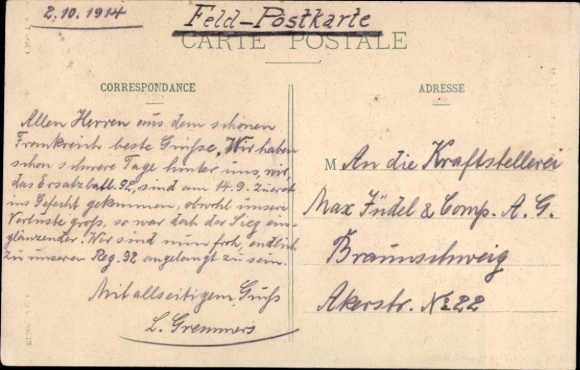 2.10.1914
Feld-Postkarte
CARTE POSTALE
CORRESPONDANCE
Allen Herren aus dem schönen
Frankreich beste Grüße. Wir haben
schon schwere Tage hinter uns, wir,
das Ersatzbatl. 92, sind am 14.9. zuerst
ins Gefecht gekommen, obwohl unsere
Verluste groß, so war doch der Sieg ein
glänzender. Wir sind nun froh, endlich
zu unserem Reg. 92 angelangt zu sein.
Mit allseitigem Gruß
L. Gremmers
ADRESSE
M An die Kraftstellerei
Max Jüdel & Comp. A. G.
Braunschweig
Akerstr. No 22